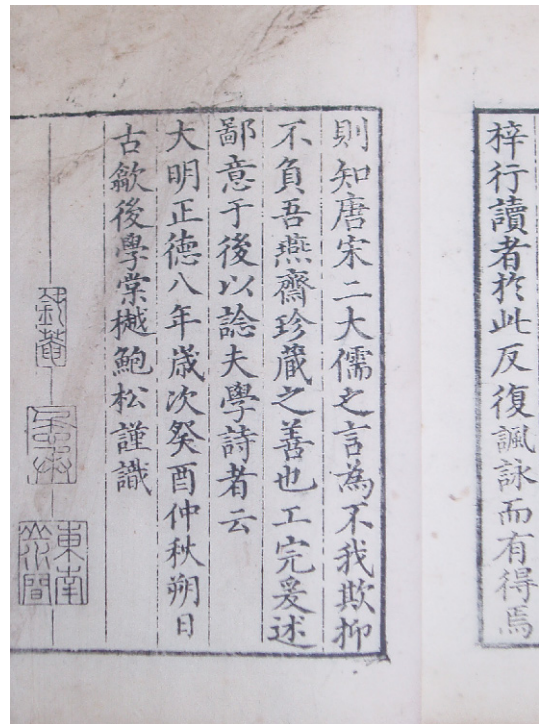 梓行讀者扵此反復諷詠而有得焉
則知唐宋二大儒之言為不我欺抑
不負吾燕齋珍藏之善也工完爰述
鄙意于後以諗夫學詩者云
大明正德八年歲次癸酉仲秋朔日
古歙後學棠樾鮑松謹識
東南